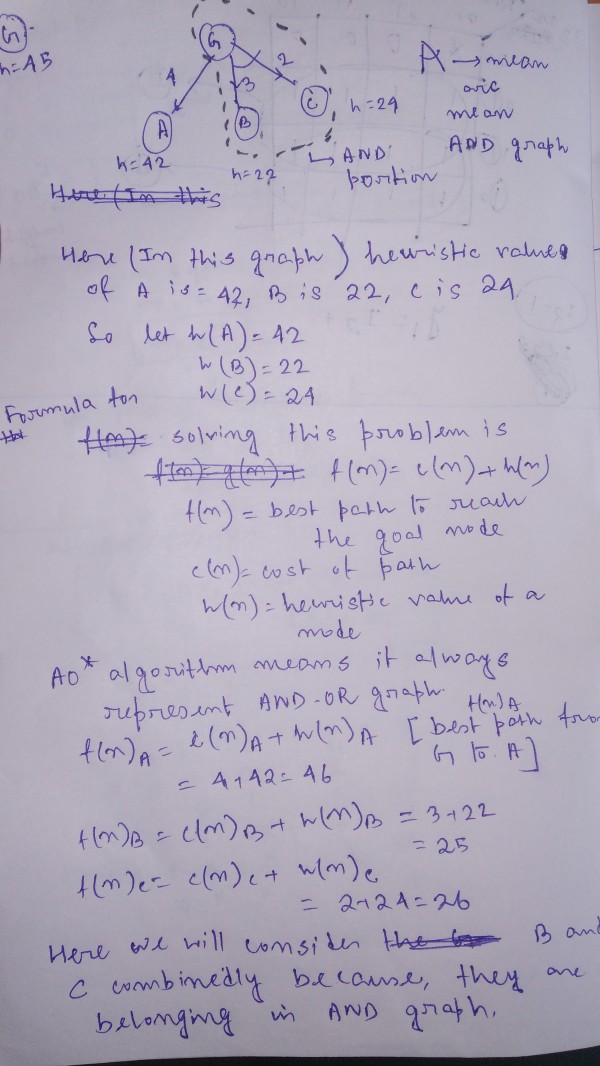 G
h=45
G
4
3
2
A
B
C
h=42
h=22
h=24
AND
portion
→ mean
arc
mean
AND graph
Here (In this
Here (In this graph) heuristic values
of A is = 42, B is 22, C is 24
So let h(A) = 42
h(B) = 22
h(C) = 24
Formula for
f(n) = solving this problem is
f(n) = g(n) + f(n) = c(n) + h(n)
f(n) = best path to reach
the goal node
c(n) = cost of path
h(n) = heuristic value of a
node
AO* algorithm means it always
represent AND-OR graph.
f(n)A
f(n)A = c(n)A + h(n)A [best path from
G to A]
= 4+42 = 46
f(n)B = c(n)B + h(n)B = 3+22
= 25
f(n)C = c(n)C + h(n)C
= 2+24 = 26
Here we will consider the B and
C combinedly because, they are
belonging in AND graph.